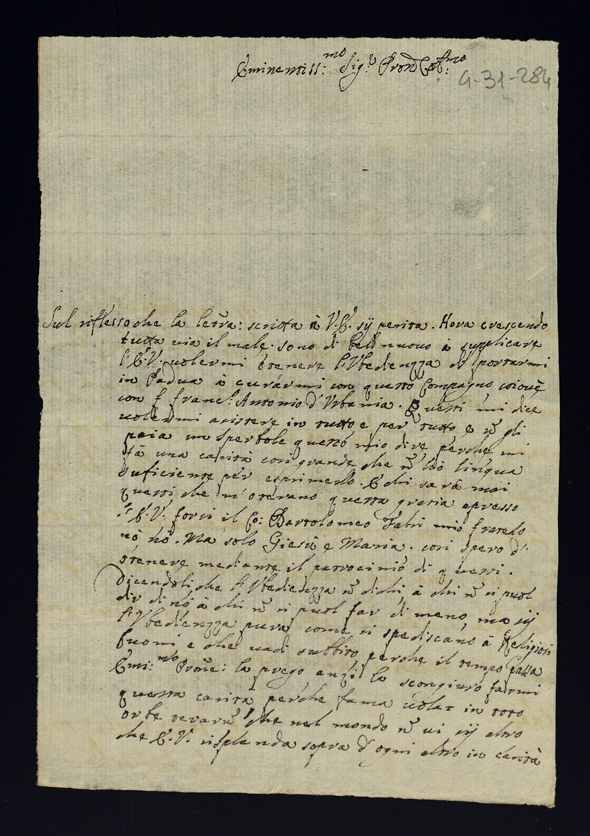 Eminentiss:mo Sig:r Pron Col:mo
G-31-284
Sul riflesso che la letra: scritta à V.E. sij perita. Hora crescendo
tutta via il male sono di bell nuouo à supplicare
l'E.V. uolermi otenere l'Vbedienza di portarmi
in Padua à curarmi con questo Compagno cioue
con f. Franc: Antonio d'Vrbania. Questi mi dice
uolermi asistere in tutto e per tutto e n gli
paia un sperbole questo mio dire perche mi
fà una carità cosi grande che n hò lingua
suficiente per esprimerlo. E chi sarà mai
questi che m'oterano questa gratia apresso
l'E.V. forsi il Bartolomeo mio fratelo
nò nò. Ma solo Giesù e Maria. cosi spero d'
otenere mediante il patrocinio di questi.
Dicendoli che l'Vbedienza n dichi à chi n si puol
dir di nò à chi n si puol far di meno, ma sij
l'Vbedienza pura come si spediscano à Religiosi
buoni e che uadi subbito perche il tempo passa
Emi:mo Prone: la prego anzi la scongiuro farmi
questa carità perche fama uolat in toto
orbe che nel mondo n ui sij altro
che E.V. risplenda sopra d'ogni altro in carità